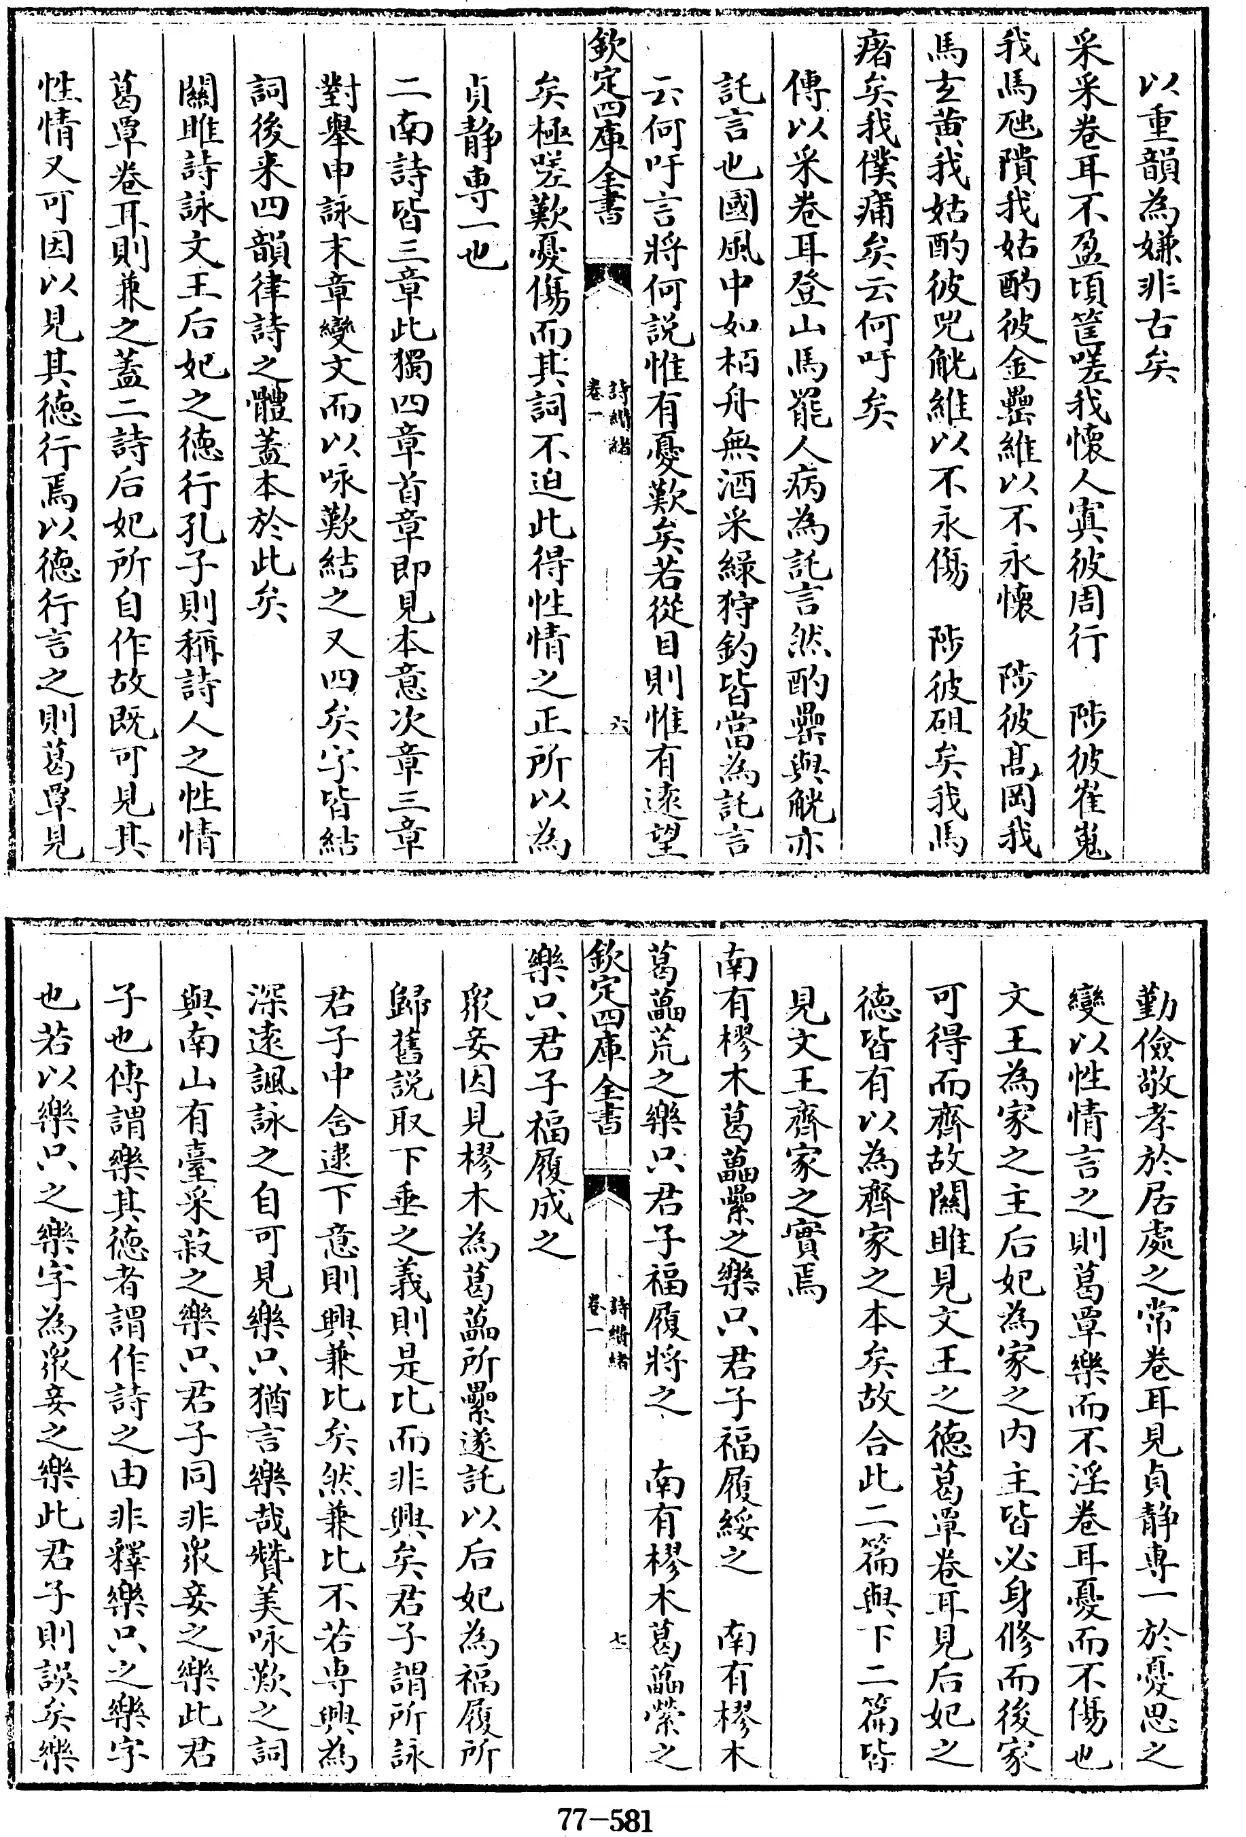 以重韻為嫌非古矣
采采卷耳不盈頃筐嗟我懷人寘彼周行　陟彼崔嵬
我馬虺隤我姑酌彼金罍維以不永懷　陟彼髙岡我
馬玄黄我姑酌彼兕觥維以不永傷　陟彼砠矣我馬
瘏矣我僕痡矣云何吁矣
傳以采卷耳登山馬罷人病為託言然酌罍與觥亦
託言也國風中如栢舟無酒采緑狩釣皆當為託言
云何吁言將何説惟有憂歎矣若從目則惟有逺望
欽定四庫全書
詩纘緒
卷一
六
矣極嗟歎憂傷而其詞不迫此得性情之正所以為
貞静専一也
二南詩皆三章此獨四章首章即見本意次章三章
對舉申詠末章變文而以咏歎結之又四矣字皆結
詞後来四韻律詩之體葢本於此矣
關雎詩詠文王后妃之徳行孔子則稱詩人之性情
葛覃卷耳則兼之葢二詩后妃所自作故既可見其
性情又可因以見其徳行焉以徳行言之則葛覃見
勤儉敬孝於居處之常卷耳見貞静専一於憂思之
變以性情言之則葛覃樂而不淫卷耳憂而不傷也
文王為家之主后妃為家之内主皆必身修而後家
可得而齊故關雎見文王之徳葛覃卷耳見后妃之
徳皆有以為齊家之本矣故合此二篇與下二篇皆
見文王齊家之實焉
南有樛木葛藟纍之樂只君子福履綏之　南有樛木
葛藟荒之樂只君子福履將之　南有樛木葛藟縈之
欽定四庫全書
詩纘緒
卷一
七
樂只君子福履成之
衆妾因見樛木為葛藟所纍遂託以后妃為福履所
歸舊説取下垂之義則是比而非興矣君子謂所詠
君子中含逮下意則興兼比矣然兼比不若専興為
深逺諷詠之自可見樂只猶言樂哉贊美咏歎之詞
與南山有臺采菽之樂只君子同非衆妾之樂此君
子也傳謂樂其徳者謂作詩之由非釋樂只之樂字
也若以樂只之樂字為衆妾之樂此君子則誤矣樂
77-581